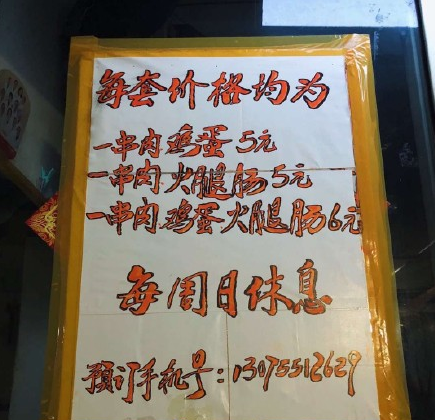 每套价格均为
一串肉鸡蛋5元
一串肉火腿肠5元
一串肉鸡蛋火腿肠6元
每周日休息
预订手机号：13075512629